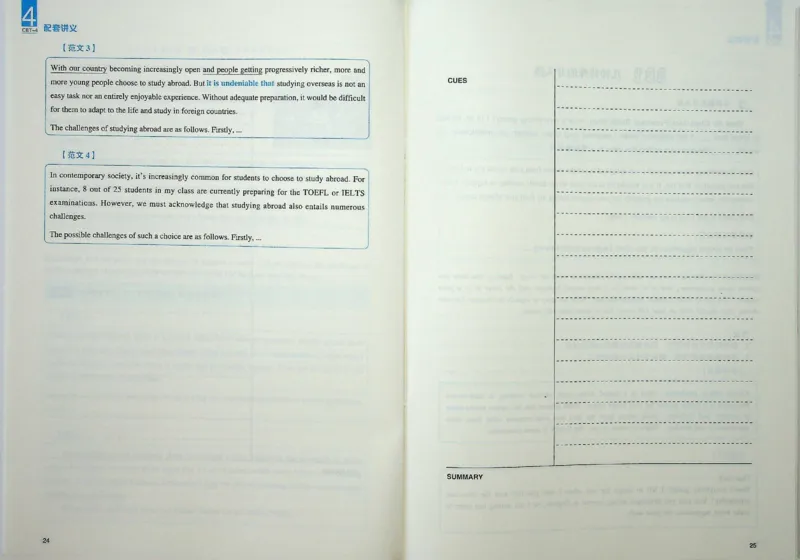 4
CET-4
配套讲义
【范文3】
With our country becoming increasingly open and people getting progressively richer, more and
more young people choose to study abroad. But it is undeniable that studying overseas is not an
easy task nor an entirely enjoyable experience. Without adequate preparation, it would be difficult
for them to adapt to the life and study in foreign countries.
The challenges of studying abroad are as follows. Firstly, ...
【范文4】
In contemporary society, it's increasingly common for students to choose to study abroad. For
instance, 8 out of 25 students in my class are currently preparing for the TOEFL or IELTS
examinations. However, we must acknowledge that studying abroad also entails numerous
challenges.
The possible challenges of such a choice are as follows. Firstly, ...
24
CUES
SUMMARY
25